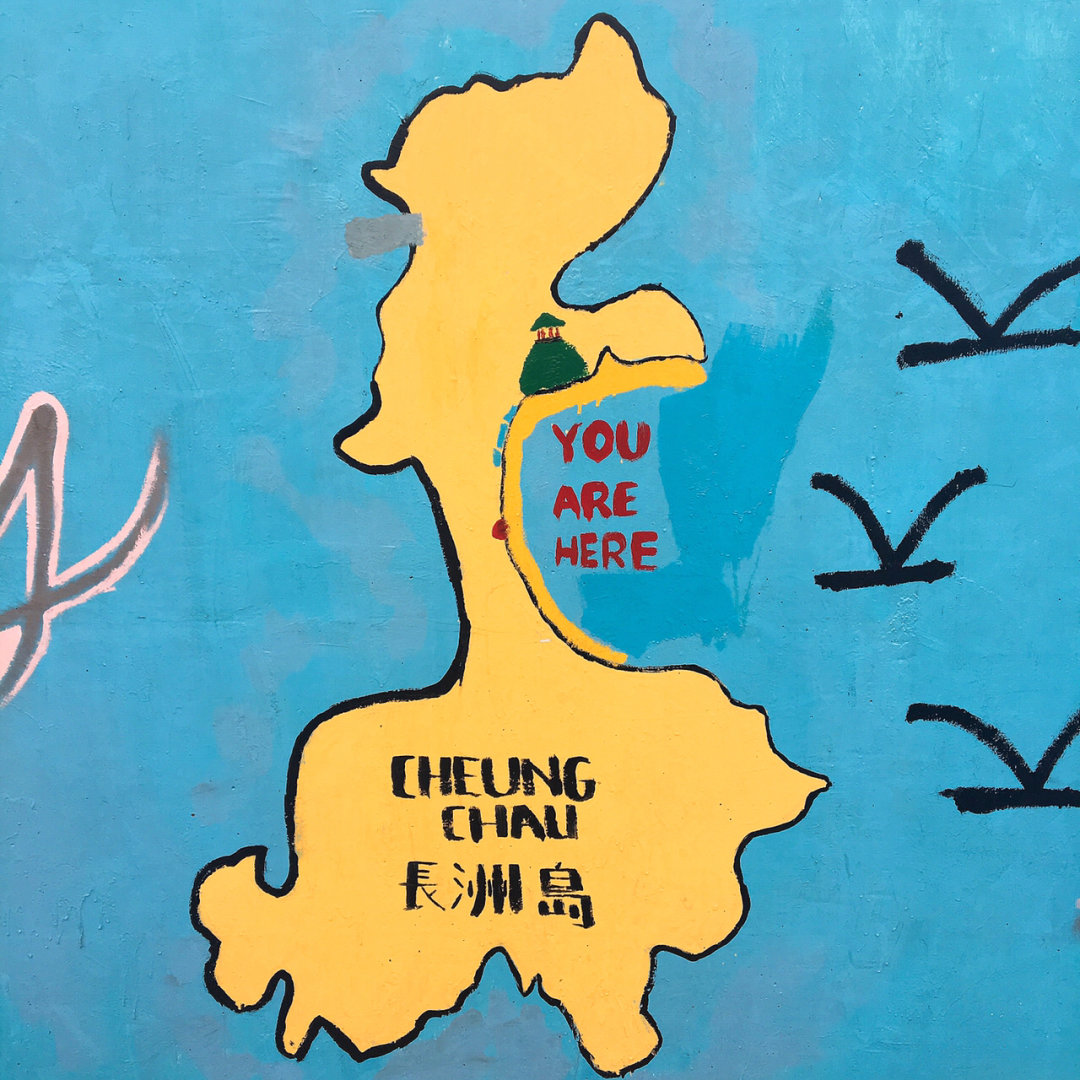 YOU
ARE
HERE
CHEUNG
CHAU
長洲島